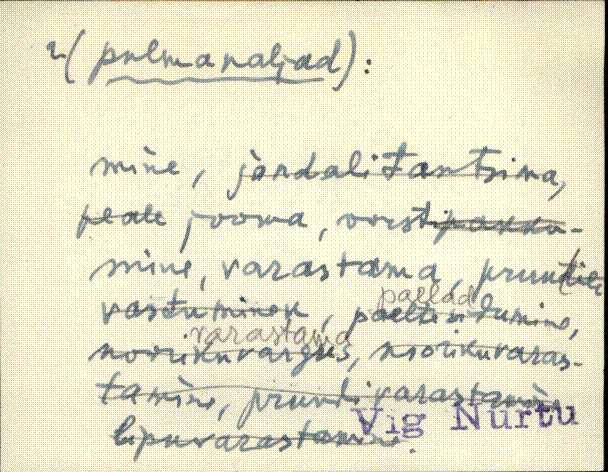 2 (pulmanaljad):
mine, jandali tantsima,
peale jooma, vorstipakku-
mine, varastama, pruutile
vastuminek, paeltsidumine,
paelad
varastama
noorikuvargus, noorikuvaras-
tamine, pruudivarastamine
lipuvarastamine.
Vig Nurtu